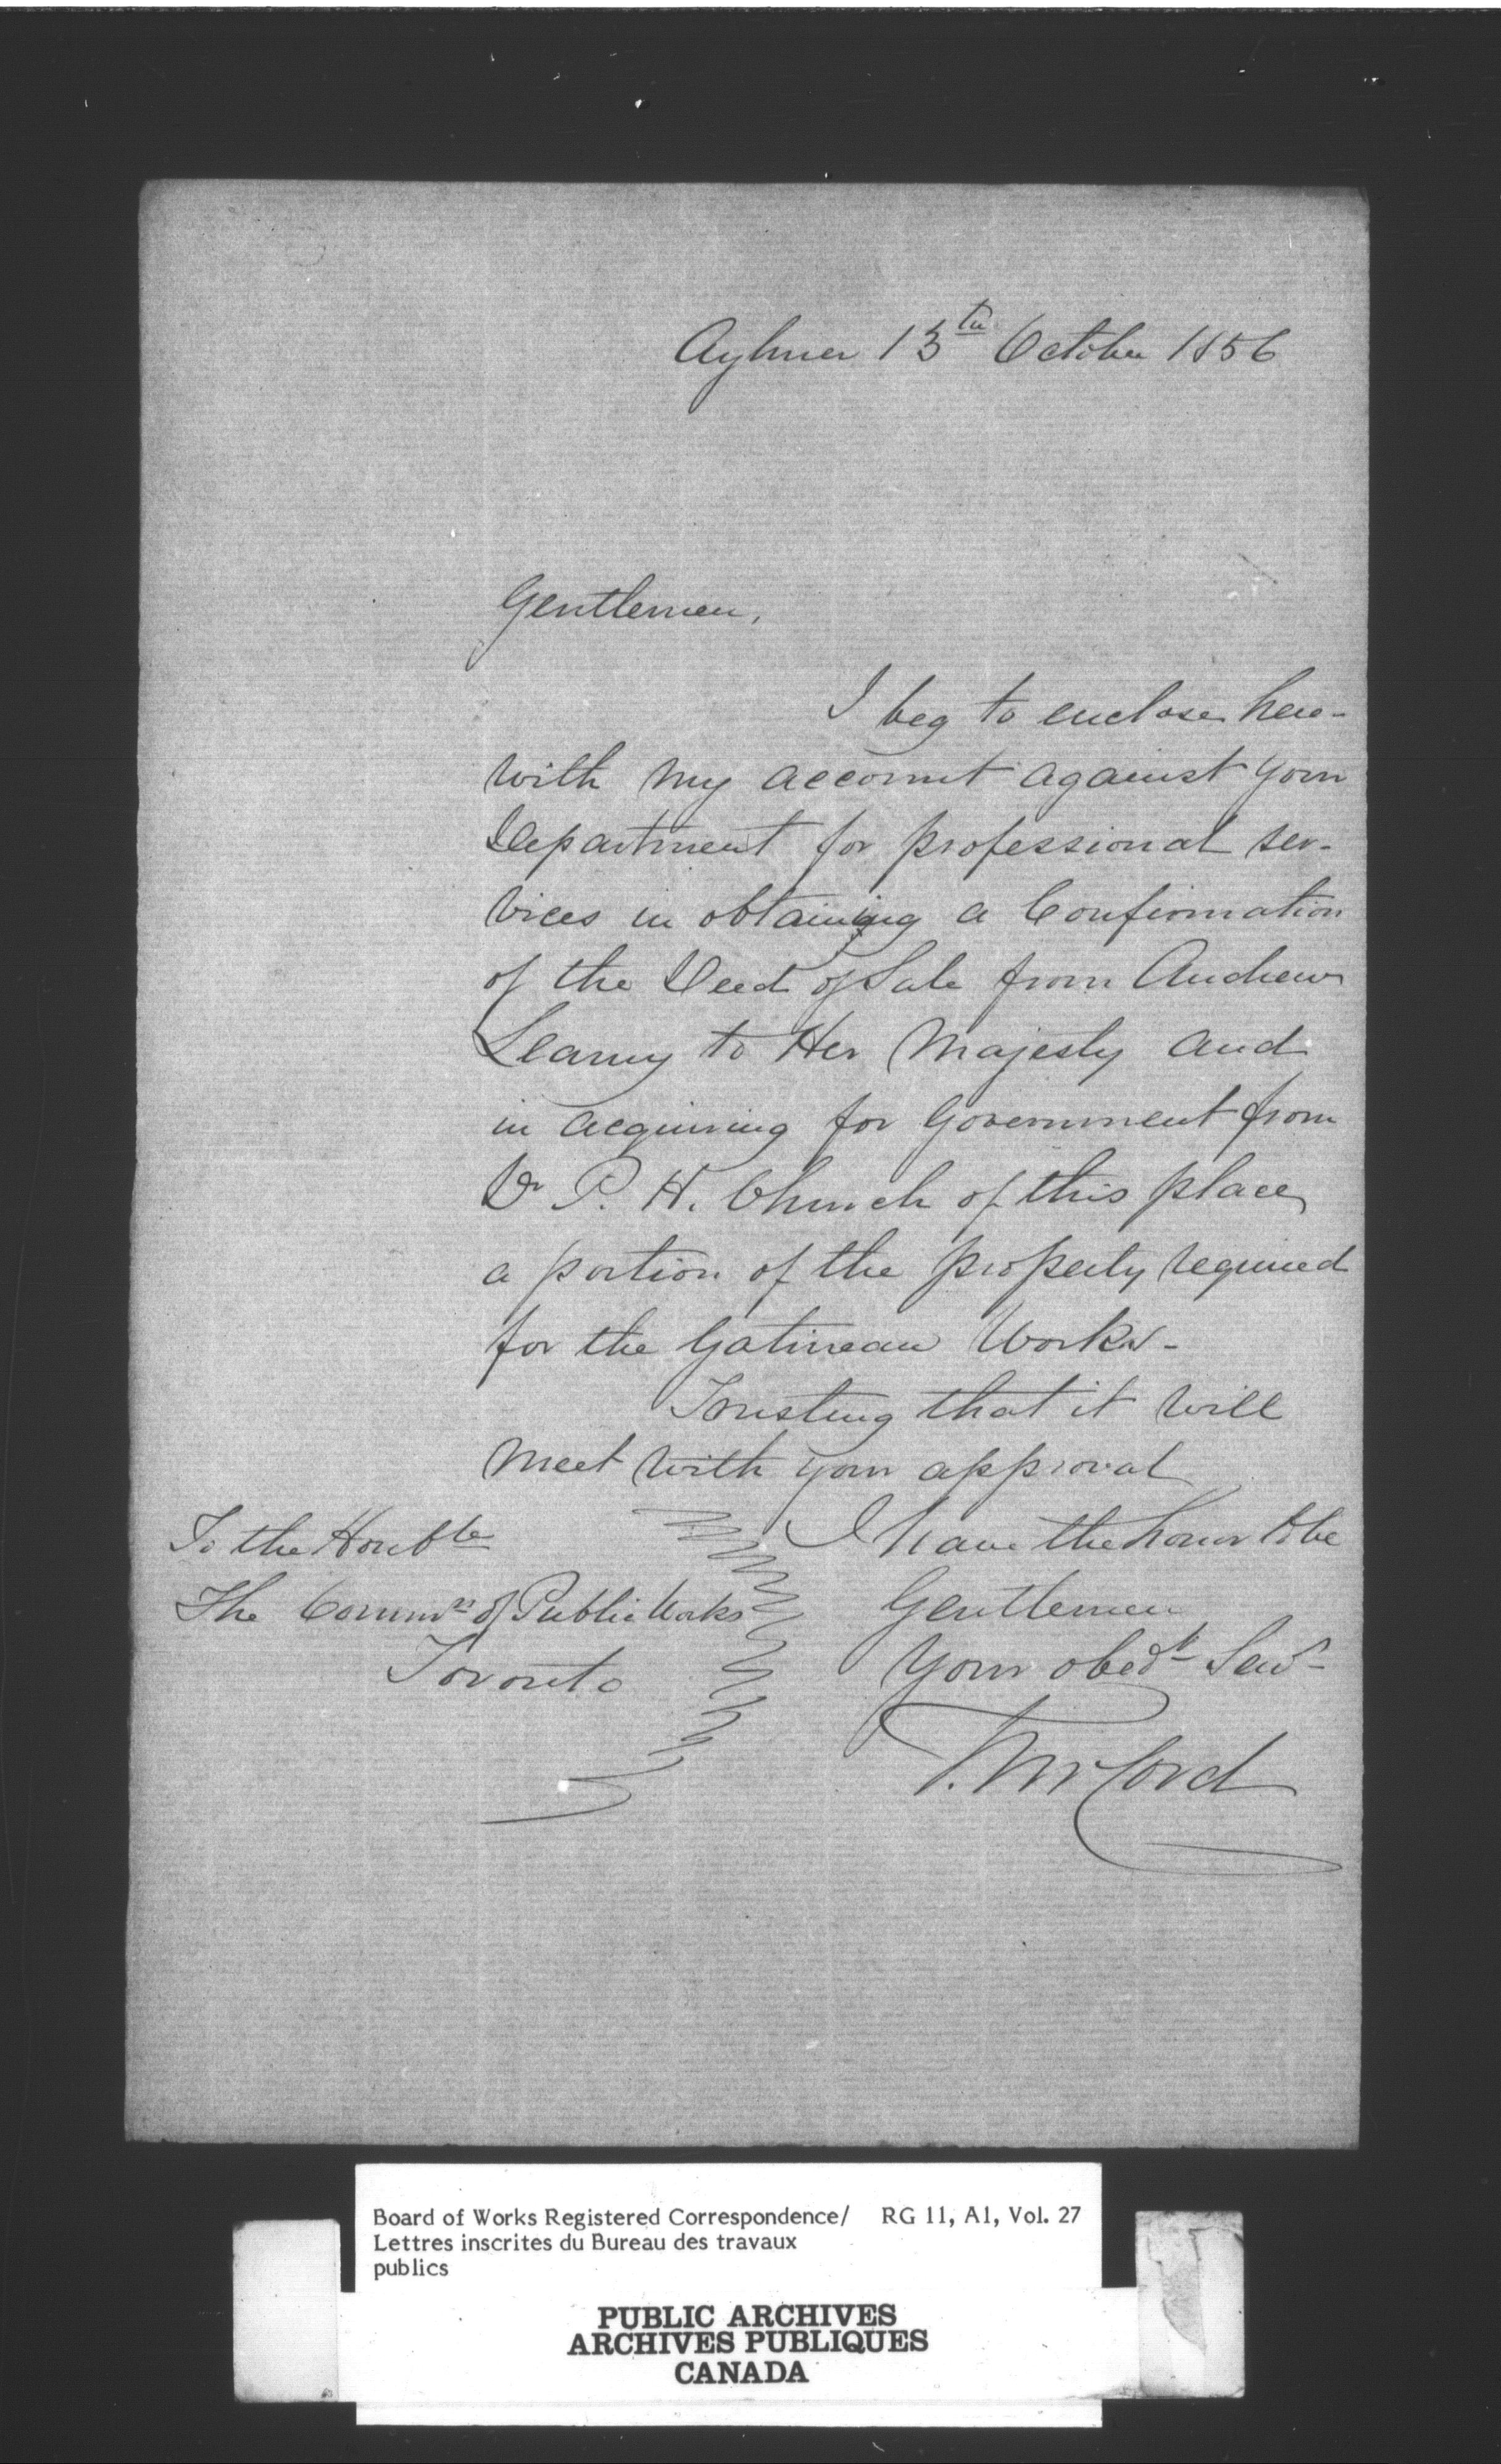 Aylmer 13th October 1856
Gentlemen,
I beg to enclose here-
with my account against your
Department for professional ser-
vices in obtaining a Confirmation
of the Deed of Sale from Andrew
Leamy to Her Majesty and
in acquiring for Government from
Dr P. H. Church of this place,
a portion of the property required
for the Gatineau Works-
Trusting that it will
meet with your approval
I have the honor to be
Gentlemen
Your obedt Servt
To the Honble
The Commrs of Public Works
Toronto
T. McCord
Board of Works Registered Correspondence/ RG 11, A1, Vol. 27
Lettres inscrites du Bureau des travaux
publics
PUBLIC ARCHIVES
ARCHIVES PUBLIQUES
CANADA